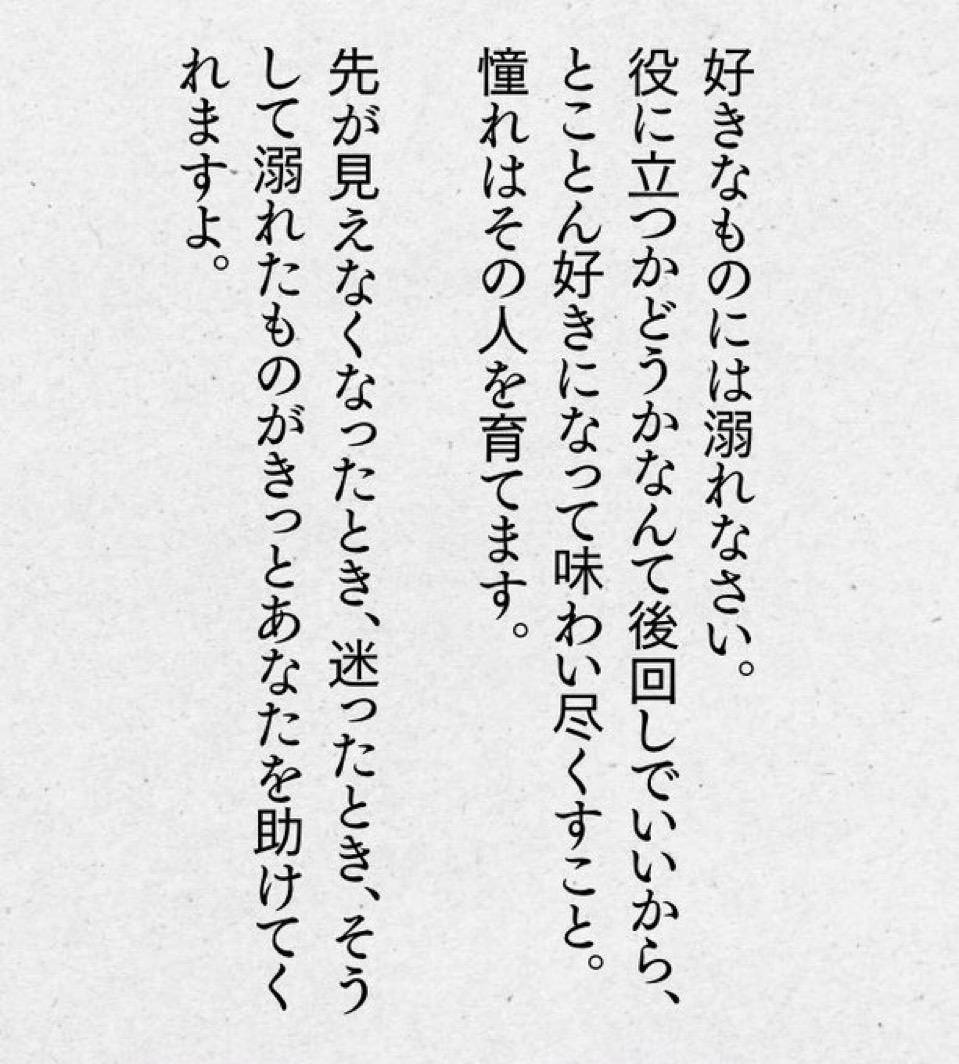 好きなものには溺れなさい。
役に立つかどうかなんて後回しでいいから、
とことん好きになって味わい尽くすこと。
憧れはその人を育てます。
先が見えなくなったとき、迷ったとき、そう
して溺れたものがきっとあなたを助けてく
れますよ。